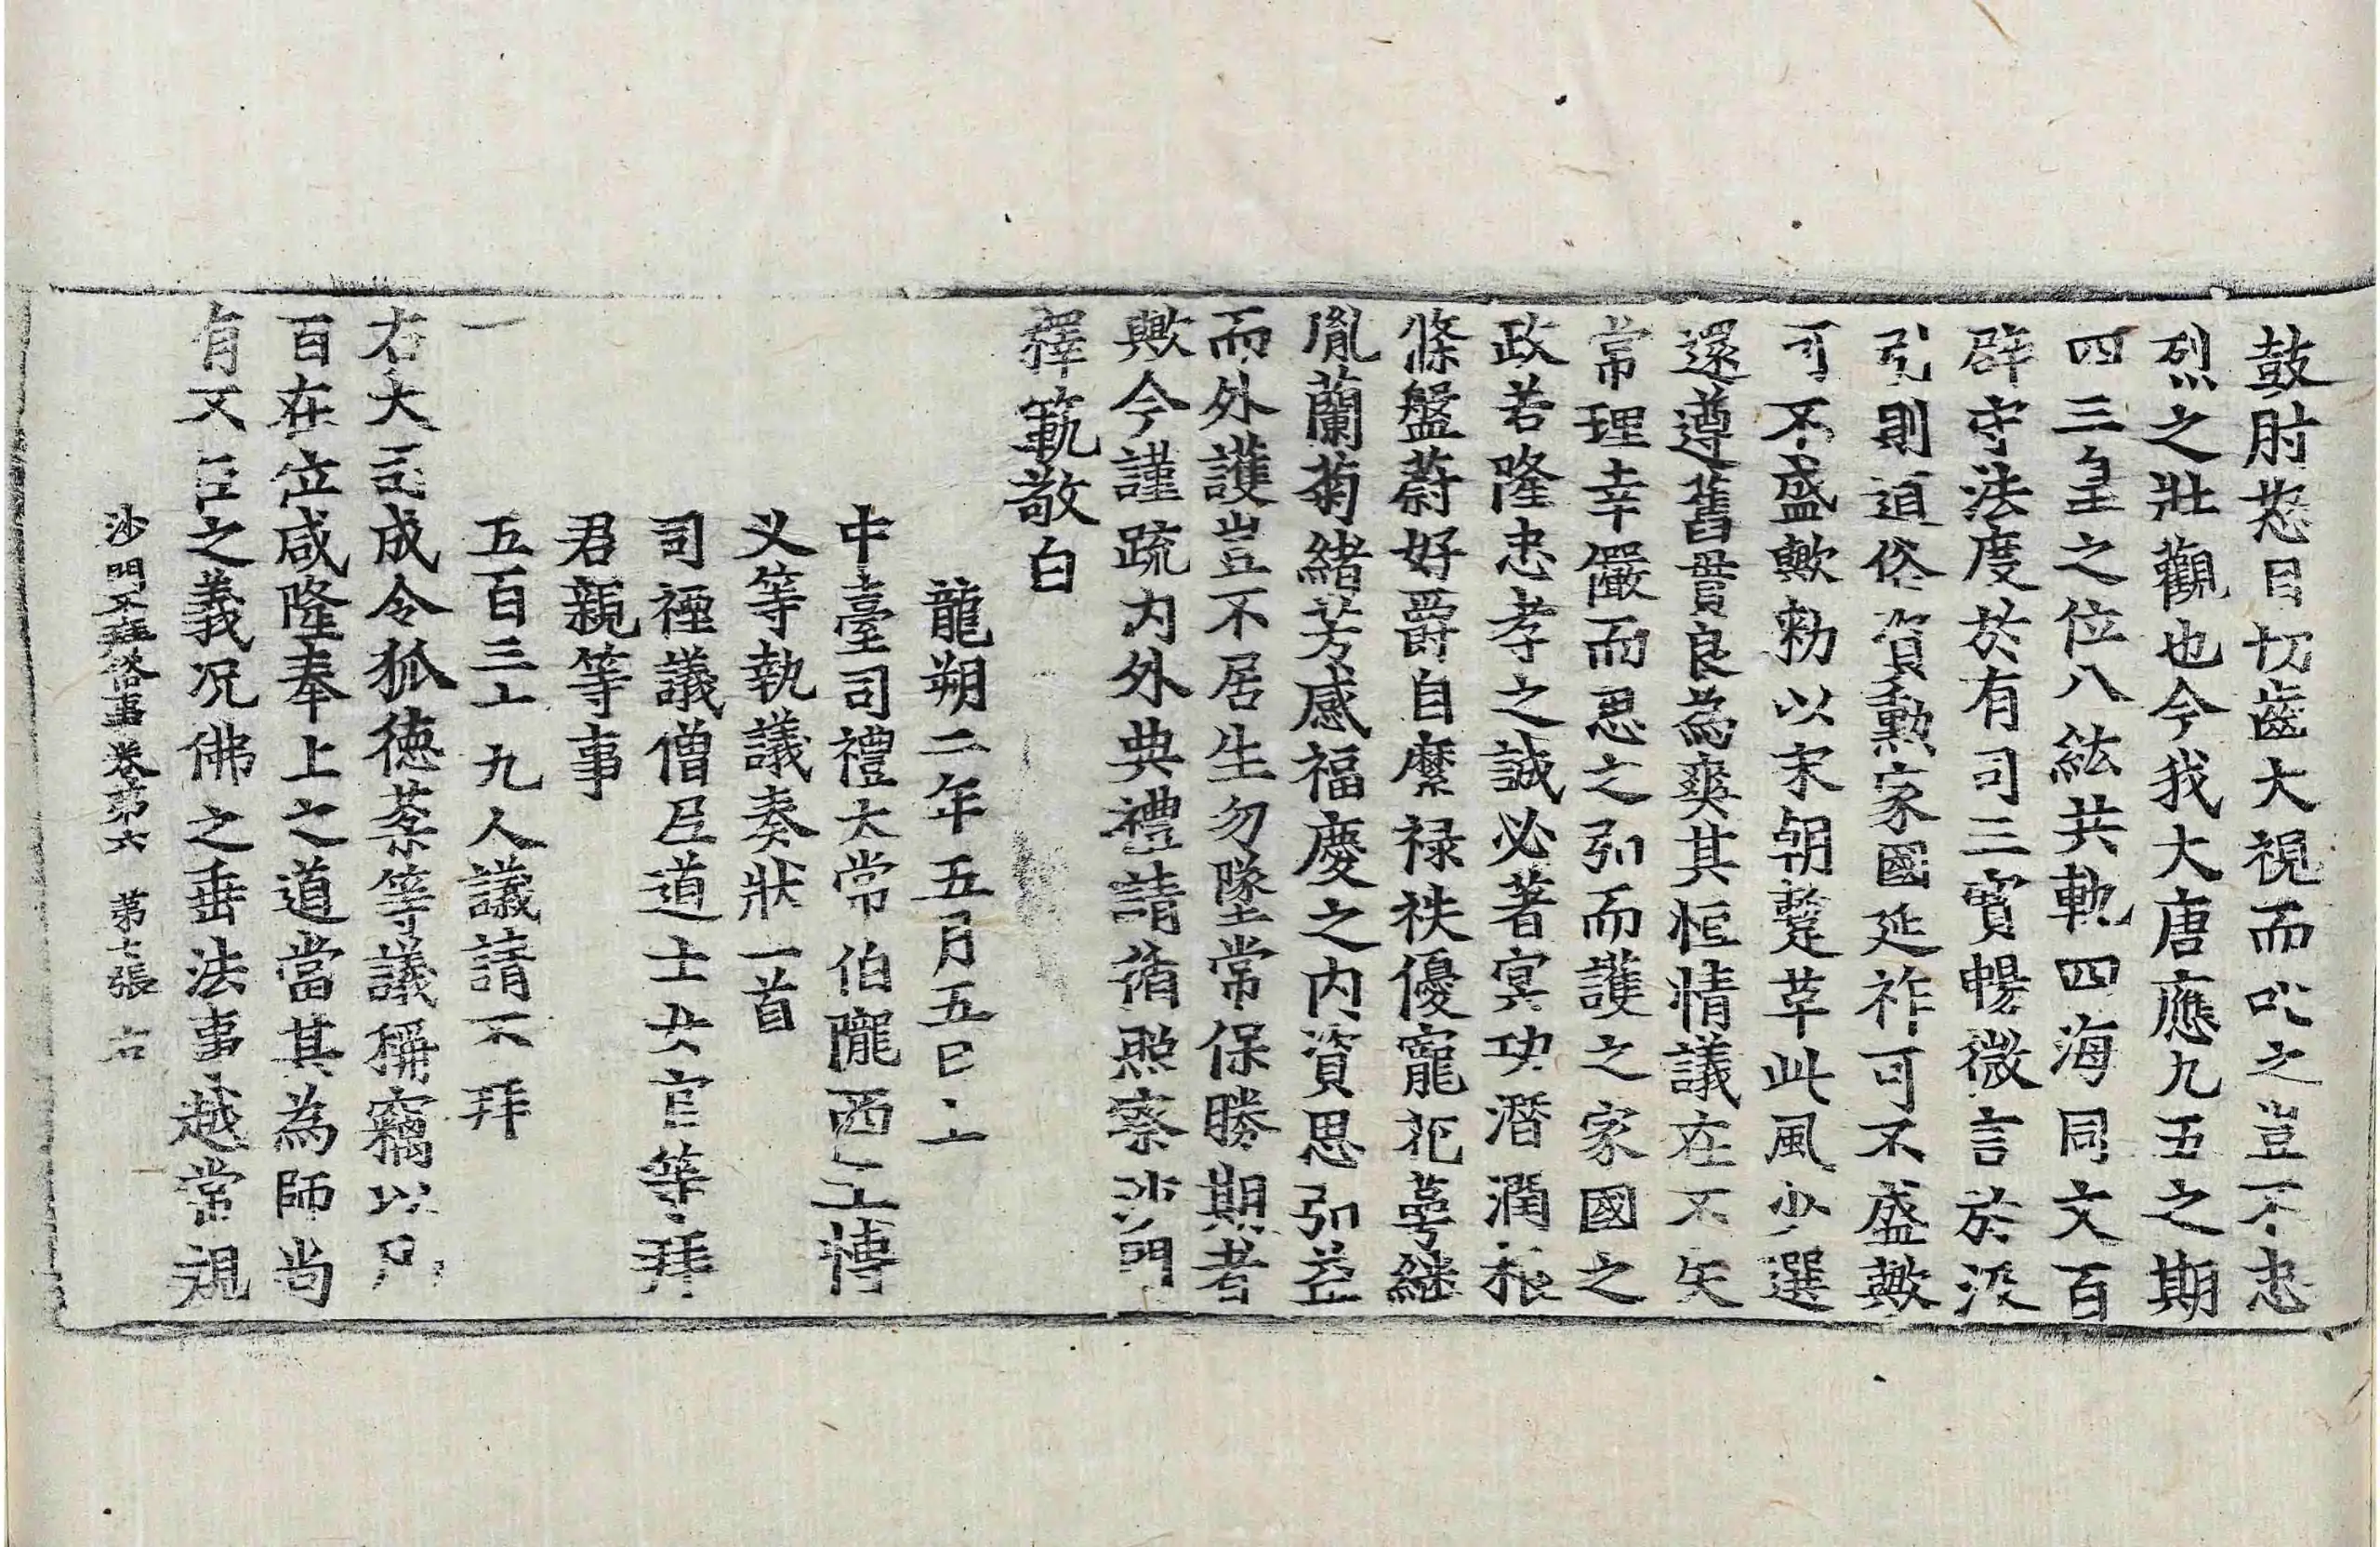 鼓肘怒目切齒大視而叱之豈不忠
烈之壯觀也今我大唐應九五之期
四三皇之位八紘共軌四海同文百
辟守法度於有司三寶暢微言於汲
引則道俗資勳家國延祚可不盛歟
可不盛歟勑以宋朝蹔革此風少選
還遵舊貫良爲爽其恒情議在不失
常理幸儼而思之弘而護之家國之
政若隆忠孝之誠必著冥功潛潤根
條盤蔚好爵自縻祿秩優寵花萼繼
胤蘭菊緒芳感福慶之內資思弘益
而外護豈不居生勿墜常保勝期者
歟今謹疏內外典禮請循照察沙門
釋範敬白
龍朔二年五月五日上
中臺司禮太常伯隴西王博
乂等執議奏狀一首
司禋議僧尼道士女官等拜
君親等事
一
五百三十九人議請不拜
右大司成令狐德棻等議稱竊以凡
百在位咸隆奉上之道當其爲師尚
有不臣之義況佛之垂法事越常規
沙門不拜俗事卷第六 第七張 右